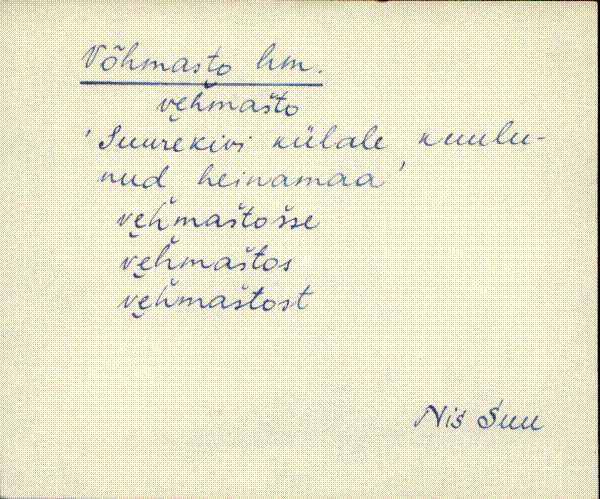 Võhmasto hm.
ve̮h̆mašto
'Suurekivi külale kuulu-
nud heinamaa'
ve̮h̆maštošse
ve̮h̆maštos
ve̮h̆maštost
Nis Suu